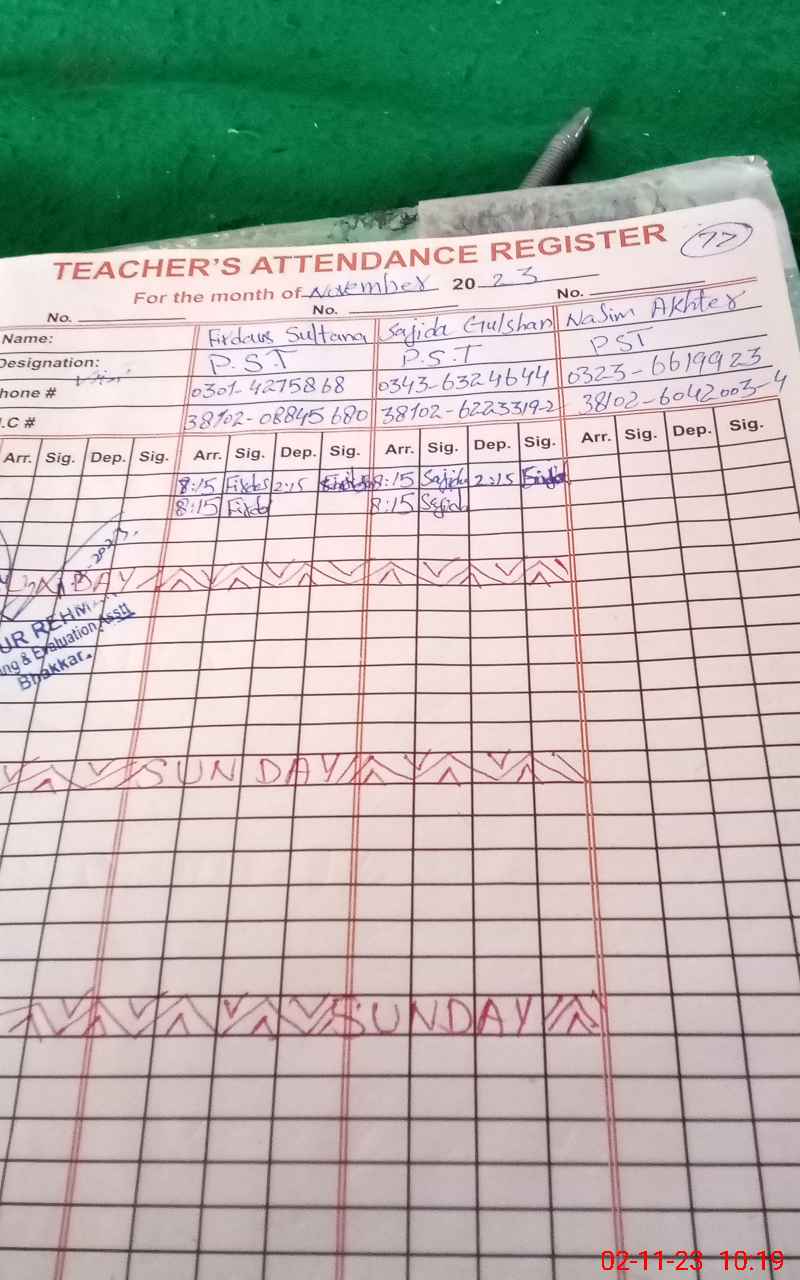 77
TEACHER'S ATTENDANCE REGISTER
For the month of November 2023
No. No. No.
Name: Firdaus Sultana Sajida Gulshan Nasim Akhter
Designation: P.S.T P.S.T PST
hone # 0301-4275868 0343-6324644 0323-6619923
.C # 38102-08845680 38102-6223319-2 38102-6042003-4
Arr. Sig. Dep. Sig. Arr. Sig. Dep. Sig. Arr. Sig. Dep. Sig. Arr. Sig. Dep. Sig.
8:15 2:15 8:15 Sajida 2:15
8:15 8:15 Sajid
UR REHM
ng & Evaluation Asstt
Bhakkar.
SUNDAY
SUNDAY
02-11-23 10.19